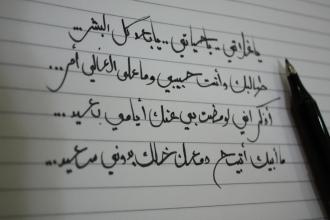 يا غرامي.. يا حياتي.. يا بعد كل البشر...
طالبك وانت حبيبي وما على الغالي أمر...
أذكر اني لو مضت بي عنك أيامي بعيد..
ما أبيك أتيـح دمعك خلك بدوني سعيد...